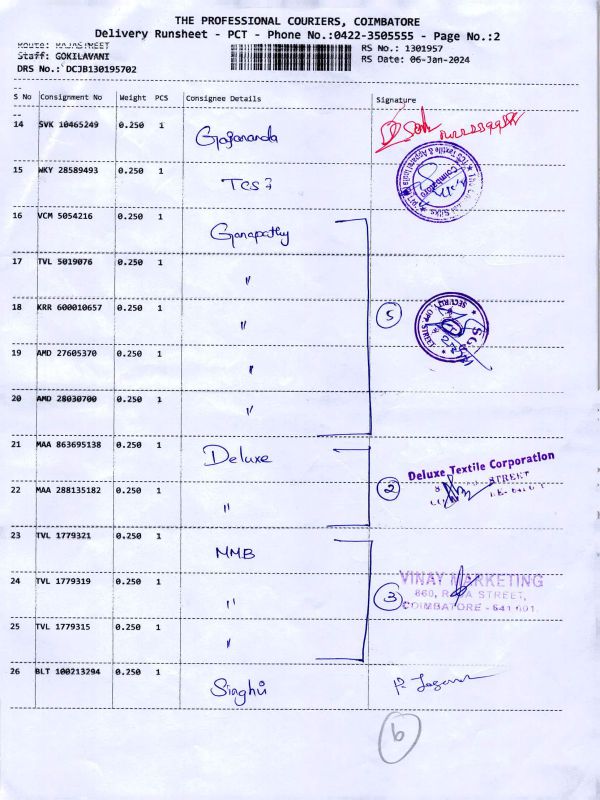 THE PROFESSIONAL COURIERS, COIMBATORE
Delivery Runsheet - PCT - Phone No.:0422-3505555 - Page No.:2
Route: RAJASTREET
RS No.: 1301957
Staff: GOKILAVANI
RS Date: 06-Jan-2024
DRS No.: DCJB130195702
S No Consignment No Weight PCS Consignee Details Signature
14 SVK 10465249 0.250 1 Gajananda
15 WKY 28589493 0.250 1 TCS
16 VCM 5054216 0.250 1 Ganapathy
17 TVL 5019076 0.250 1 "
18 KRR 600010657 0.250 1 " 5
19 AMD 27605370 0.250 1 "
20 AMD 28030700 0.250 1 "
21 MAA 863695138 0.250 1 Deluxe
Deluxe Textile Corporation
STREET
22 MAA 288135182 0.250 1 " 2
23 TVL 1779321 0.250 1 MMB
VINAY MARKETING
24 TVL 1779319 0.250 1 " 3
860, RAJA STREET,
COIMBATORE - 641 001.
25 TVL 1779315 0.250 1 "
26 BLT 100213294 0.250 1 Singhvi
6